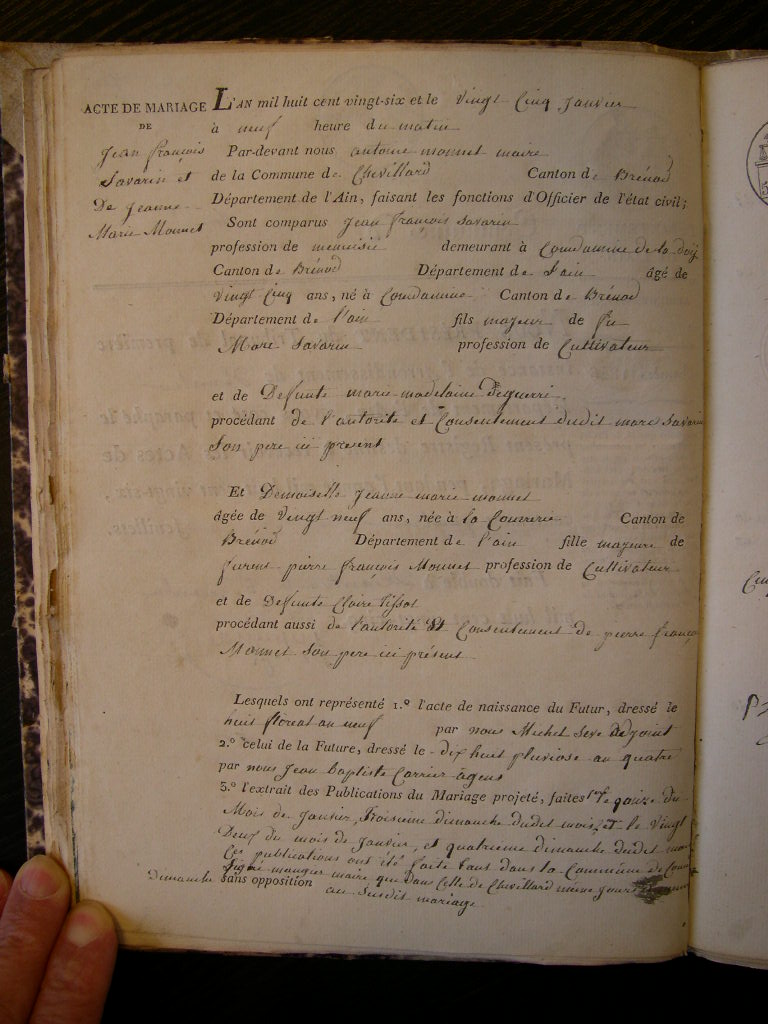 ACTE DE MARIAGE
DE
Jean françois
Savarin et
De Jeanne
Marie Monnet
L'AN mil huit cent vingt-six et le vingt Cinq Janvier
à neuf heure du matin
Par-devant nous antoine monnet maire
de la Commune de Chevillard Canton de Brénod
Département de l'Ain, faisant les fonctions d'Officier de l'état civil;
Sont comparus Jean françois Savarin
profession de demeurant à Condamine de la doÿ
Canton de Brénod Département de l'ain âgé de
vingt Cinq ans, né à Condamine Canton de Brénod
Département de l'ain fils majeur de feu
Marc Savarin profession de Cultivateur
et de Defunte marie madelaine
procédant de l'autorité et Consentement dudit marc Savarin
Son pere ici present
Et Demoiselle Jeanne marie monnet
âgée de vingt neuf ans, née à la Couvrerie Canton de
Brénod Département de l'ain fille majeure de
pierre françois Monnet profession de Cultivateur
et de Defunte Claire tissot
procédant aussi de l'autorité Et Consentement de pierre françois
Monnet Son pere ici présent
Lesquels ont représenté 1.º l'acte de naissance du Futur, dressé le
huit floreal an neuf par nous Michel Seve adjoint
2.º celui de la Future, dressé le dix huit pluviose an quatre
par nous Jean Baptiste Carrier agens
3.º l'extrait des Publications du Mariage projeté, faites le quinze du
Mois de Janvier, Troisieme dimanche dudit mois, et le vingt
Deux du mois de Janvier, et quatrieme dimanche dudit mois
Ces publications ont été faite tant dans la Commune de
maire que Dans Celle de Chevillard même Jours
Dimanche sans opposition
au Susdit mariage